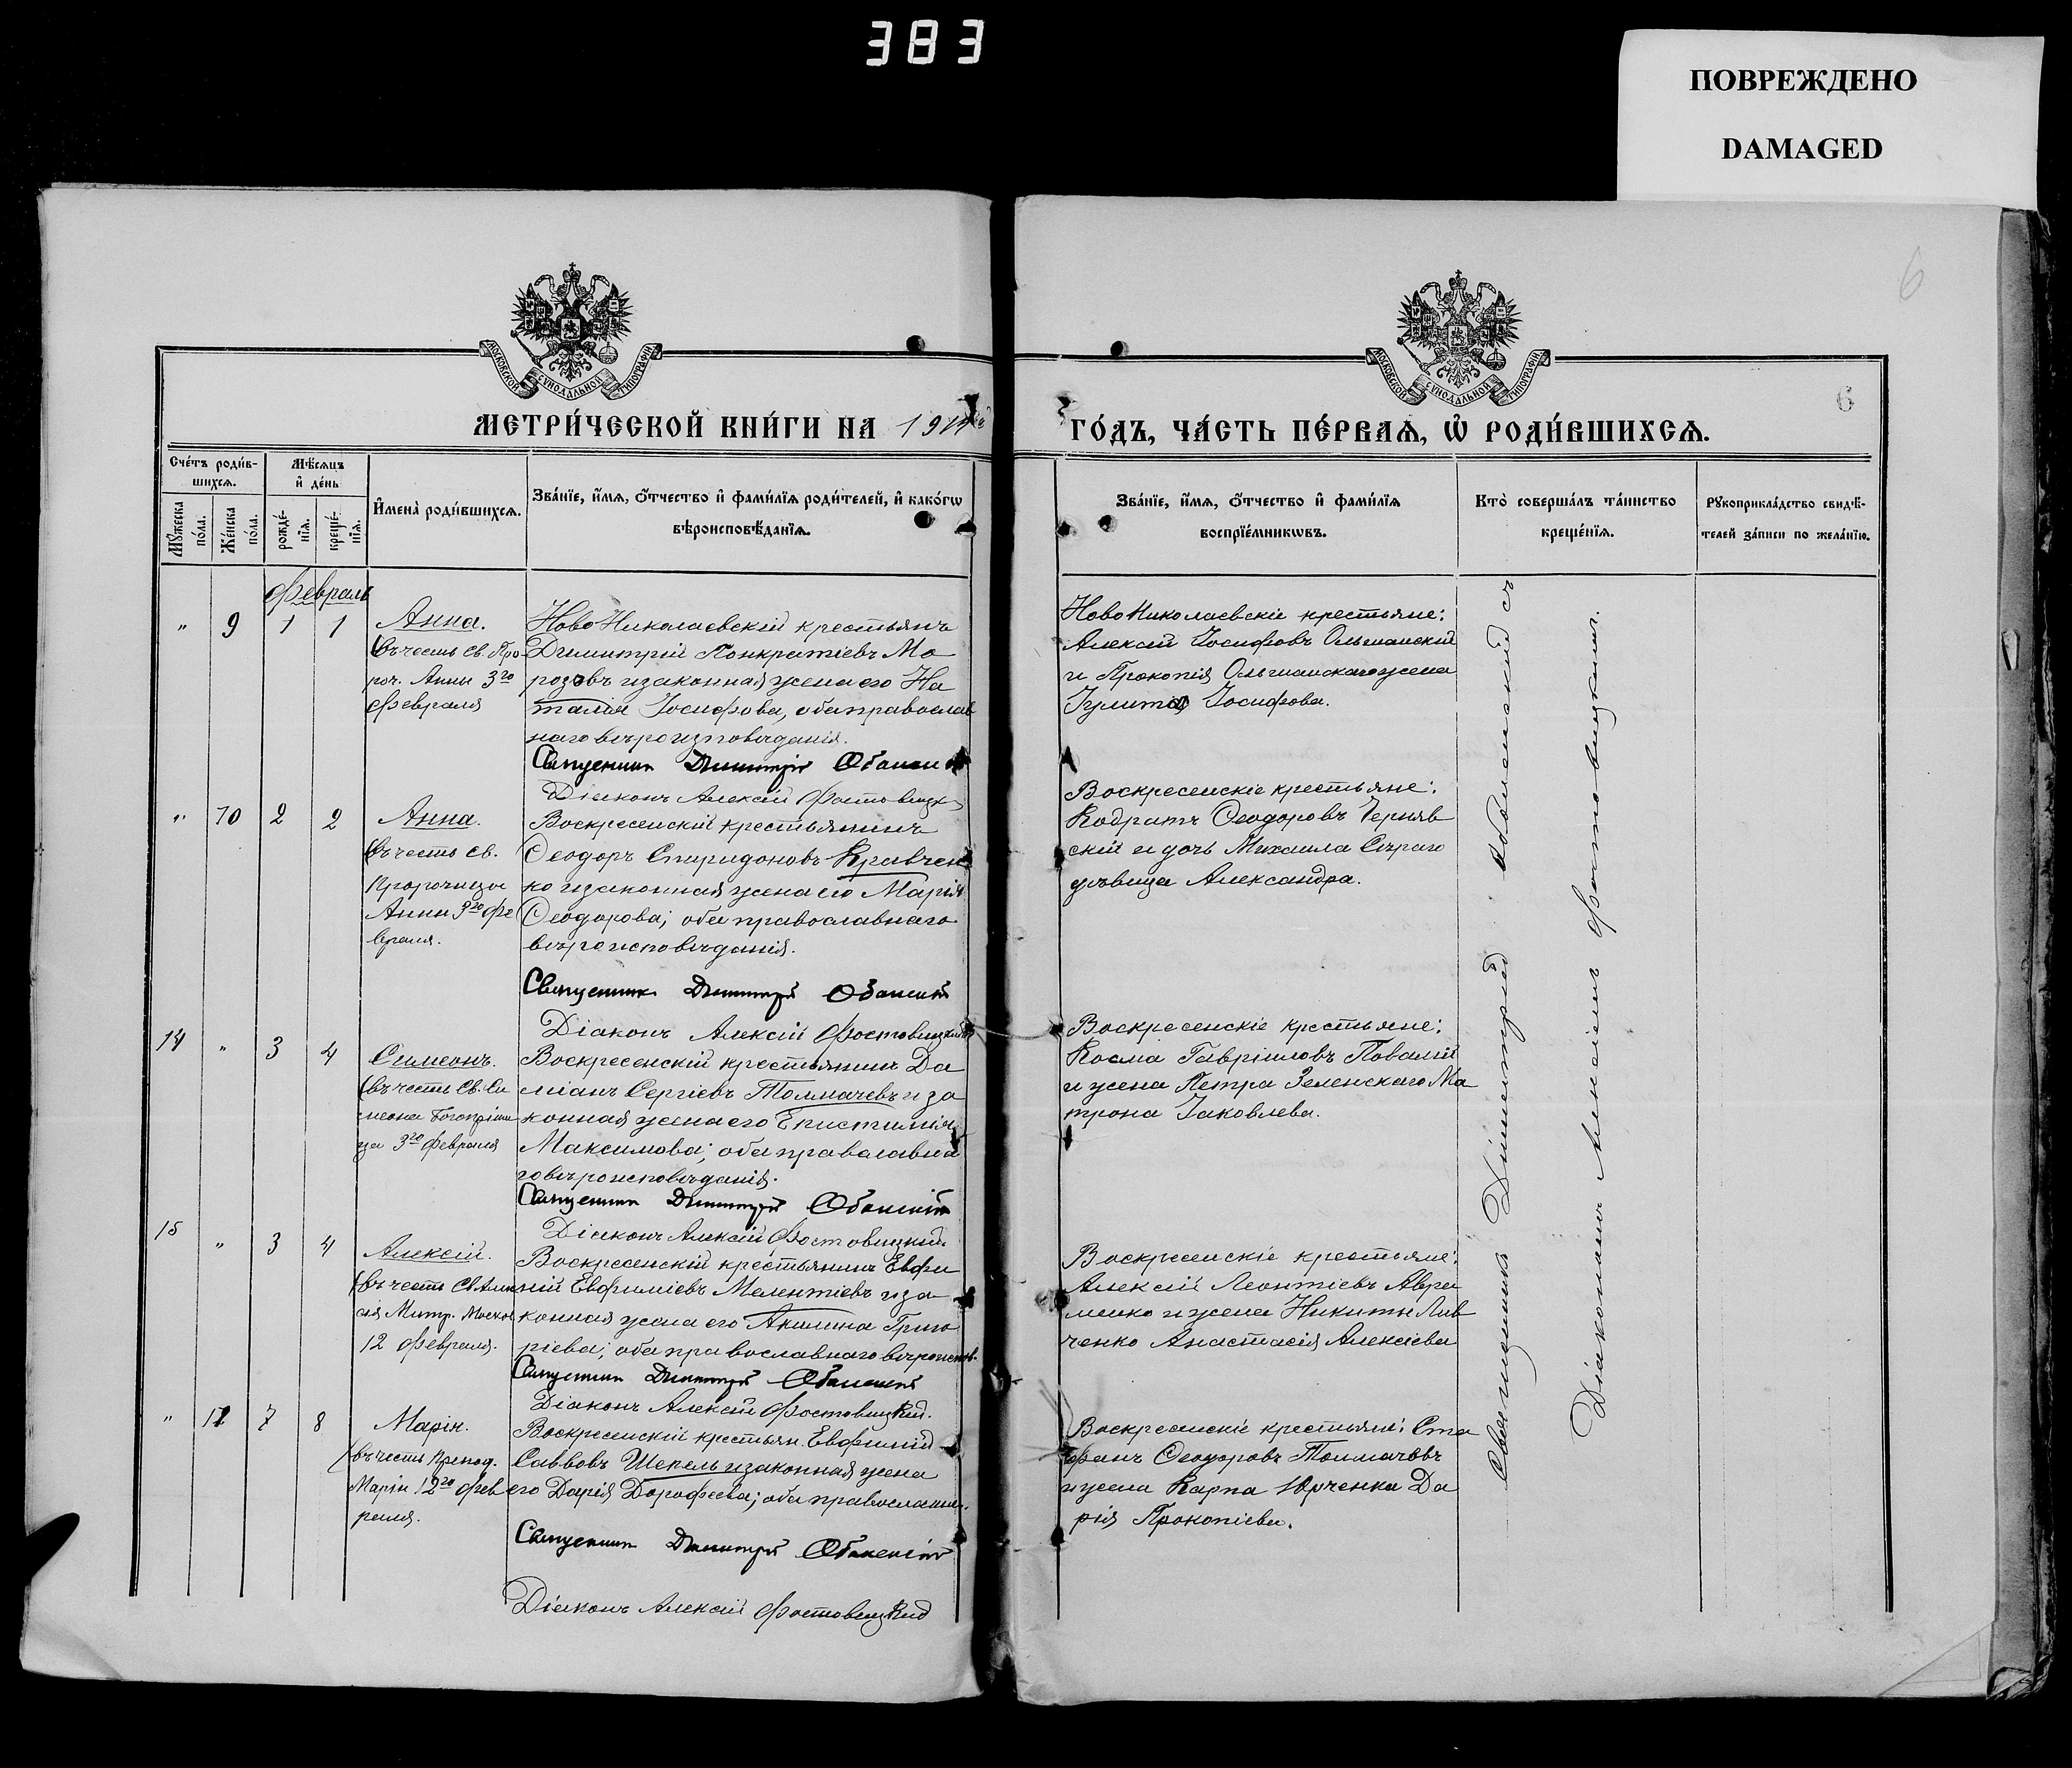 383
ПОВРЕЖДЕНО
DAMAGED
6
6
МОСКОВСКОЙ СѴНОДАЛЬНОЙ ТИПОГРАФІИ
МОСКОВСКОЙ СѴНОДАЛЬНОЙ ТИПОГРАФІИ
МЕТРИ́ЧЕСКОЙ КНИ́ГИ НА 191
ГО́ДЪ, ЧА́СТЬ ПЕ́РВАѦ, Ѡ҆ РОДИ́ВШИХСѦ.
Сче́тъ роди́в-
шихсѧ.
Мꙋ́жеска
по́ла.
Же́нска
по́ла.
Мѣ́сѧцъ
и҆ де́нь
рожде́-
нїѧ.
креще́-
нїѧ.
И҆мена̀ роди́вшихсѧ.
Зва́нїе, и҆́мѧ, ѻ҆́тчество и҆ фами́лїѧ роди́телей, и҆ како́гѡ
вѣроисповѣ́данїѧ.
Зва́нїе, и҆́мѧ, ѻ҆́тчество и҆ фами́лїѧ
воспрїе́мникѡвъ.
Кто̀ соверша́лъ та́инство
креще́нїѧ.
Рꙋкоприкла́дство свидѣ́-
телей за́писи по жела́нїю.
Февраль
" 9 1 1
Анна.
(въ честь св. Про-
роч. Анны 3го
февраля
НовоНиколаевскій крестьянъ
Димитрій Понкратіевъ Мо
розовъ и законная жена его На
талія Іосифова, оба православ
наго вѣроизповѣданія.
Священникъ Димитрій
Діаконъ Алексій Фостовицк
НовоНиколаевскіе крестьяне:
Алексій Іосифовъ Ольшанскій
и Прокопія Ольшанскаго жена
Іулита Іосифова.
" 10 2 2
Анна.
(въ честь св.
Пророчицы
Анны 3го фе
враля.
Воскресенскій крестьянинъ
Ѳеодоръ Спиридоновъ Кравчен
ко и законная жена его Марія
Ѳеодорова; оба православнаго
вѣроисповѣданія.
Священникъ Димитрій
Діаконъ Алексій Фостовицкій
Воскресенскіе крестьяне:
Кодратъ Ѳеодоровъ Черняв
скій и дочь Михаила Сѣраго
дѣвица Александра.
14 " 3 4
Симеонъ.
(въ честь св. Си
меона Богопріим
ца 3го февраля
Воскресенскій крестьянинъ Да
міанъ Сергіевъ Толмачевъ и за
конная жена его Епистимія
Максимова; оба православна
го вѣроисповѣданія.
Священникъ Димитрій
Діаконъ Алексій Фостовицкій.
Воскресенскіе крестьяне:
Косма Гавріиловъ Повалій
и жена Петра Зеленскаго Ма
трона Іаковлева.
15 " 3 4
Алексій.
(въ честь св. Алек
сія Митр. Москов
12 февраля.
Воскресенскій крестьянинъ Евфи
мій Евфиміевъ Мелентіевъ и за
конная жена его Акилина Григо
ріева; оба православнаго вѣроиспов.
Священникъ Димитрій
Діаконъ Алексій Фостовицкій.
Воскресенскіе крестьяне:
Алексій Леонтіевъ Авра
менко и жена Никиты Лав
ченко Анастасія Алексіева
" 11 7 8
Марія.
(въ честь Препод.
Маріи 12го фев
раля.
Воскресенскій крестьян. Евфимій
Саввовъ Шепель и законная жена
его Дарія Дорофеева; оба православн.
Священникъ Димитрій
Діаконъ Алексій Фостовицкій
Воскресенскіе крестьяне: Сте
фанъ Ѳеодоровъ Толмачовъ
и жена Карпа Юрченка Да
рія Прокопіева.
Священникъ Димитрій съ
Діакономъ Алексіемъ Фостовицкимъ.